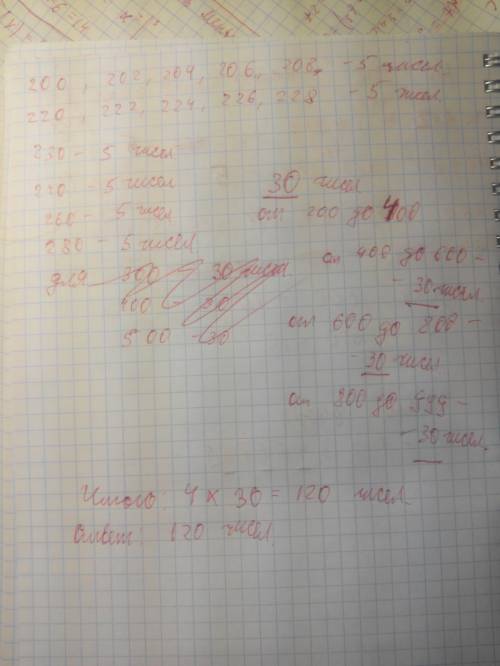 200, 202, 204, 206, 208, - 5 чисел
220, 222, 224, 226, 228 - 5 чисел
230 - 5 чисел
220 - 5 чисел
260 - 5 чисел
280 - 5 чисел
30 чисел
от 200 до 400
для 300 30 числа
400 30
500 - 30
от 400 до 600 -
- 30 чисел
от 600 до 800 -
- 30 чисел
от 800 до 999 -
- 30 чисел
Итого: 4 × 30 = 120 чисел.
Ответ: 120 чисел